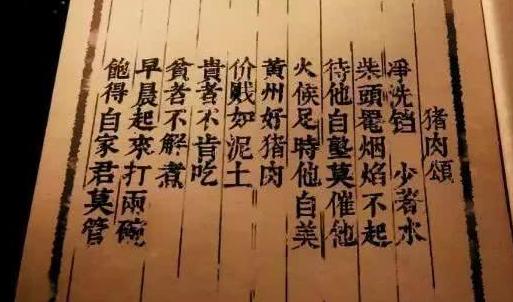 猪肉頌
凈洗铛　少著水
柴頭罨烟焰不起
待他自塾莫催他
火候足時他自美
黄州好猪肉
价贱如泥土
貴者不肯吃
貧者不解煮
早晨起來打兩碗
飽得自家君莫管